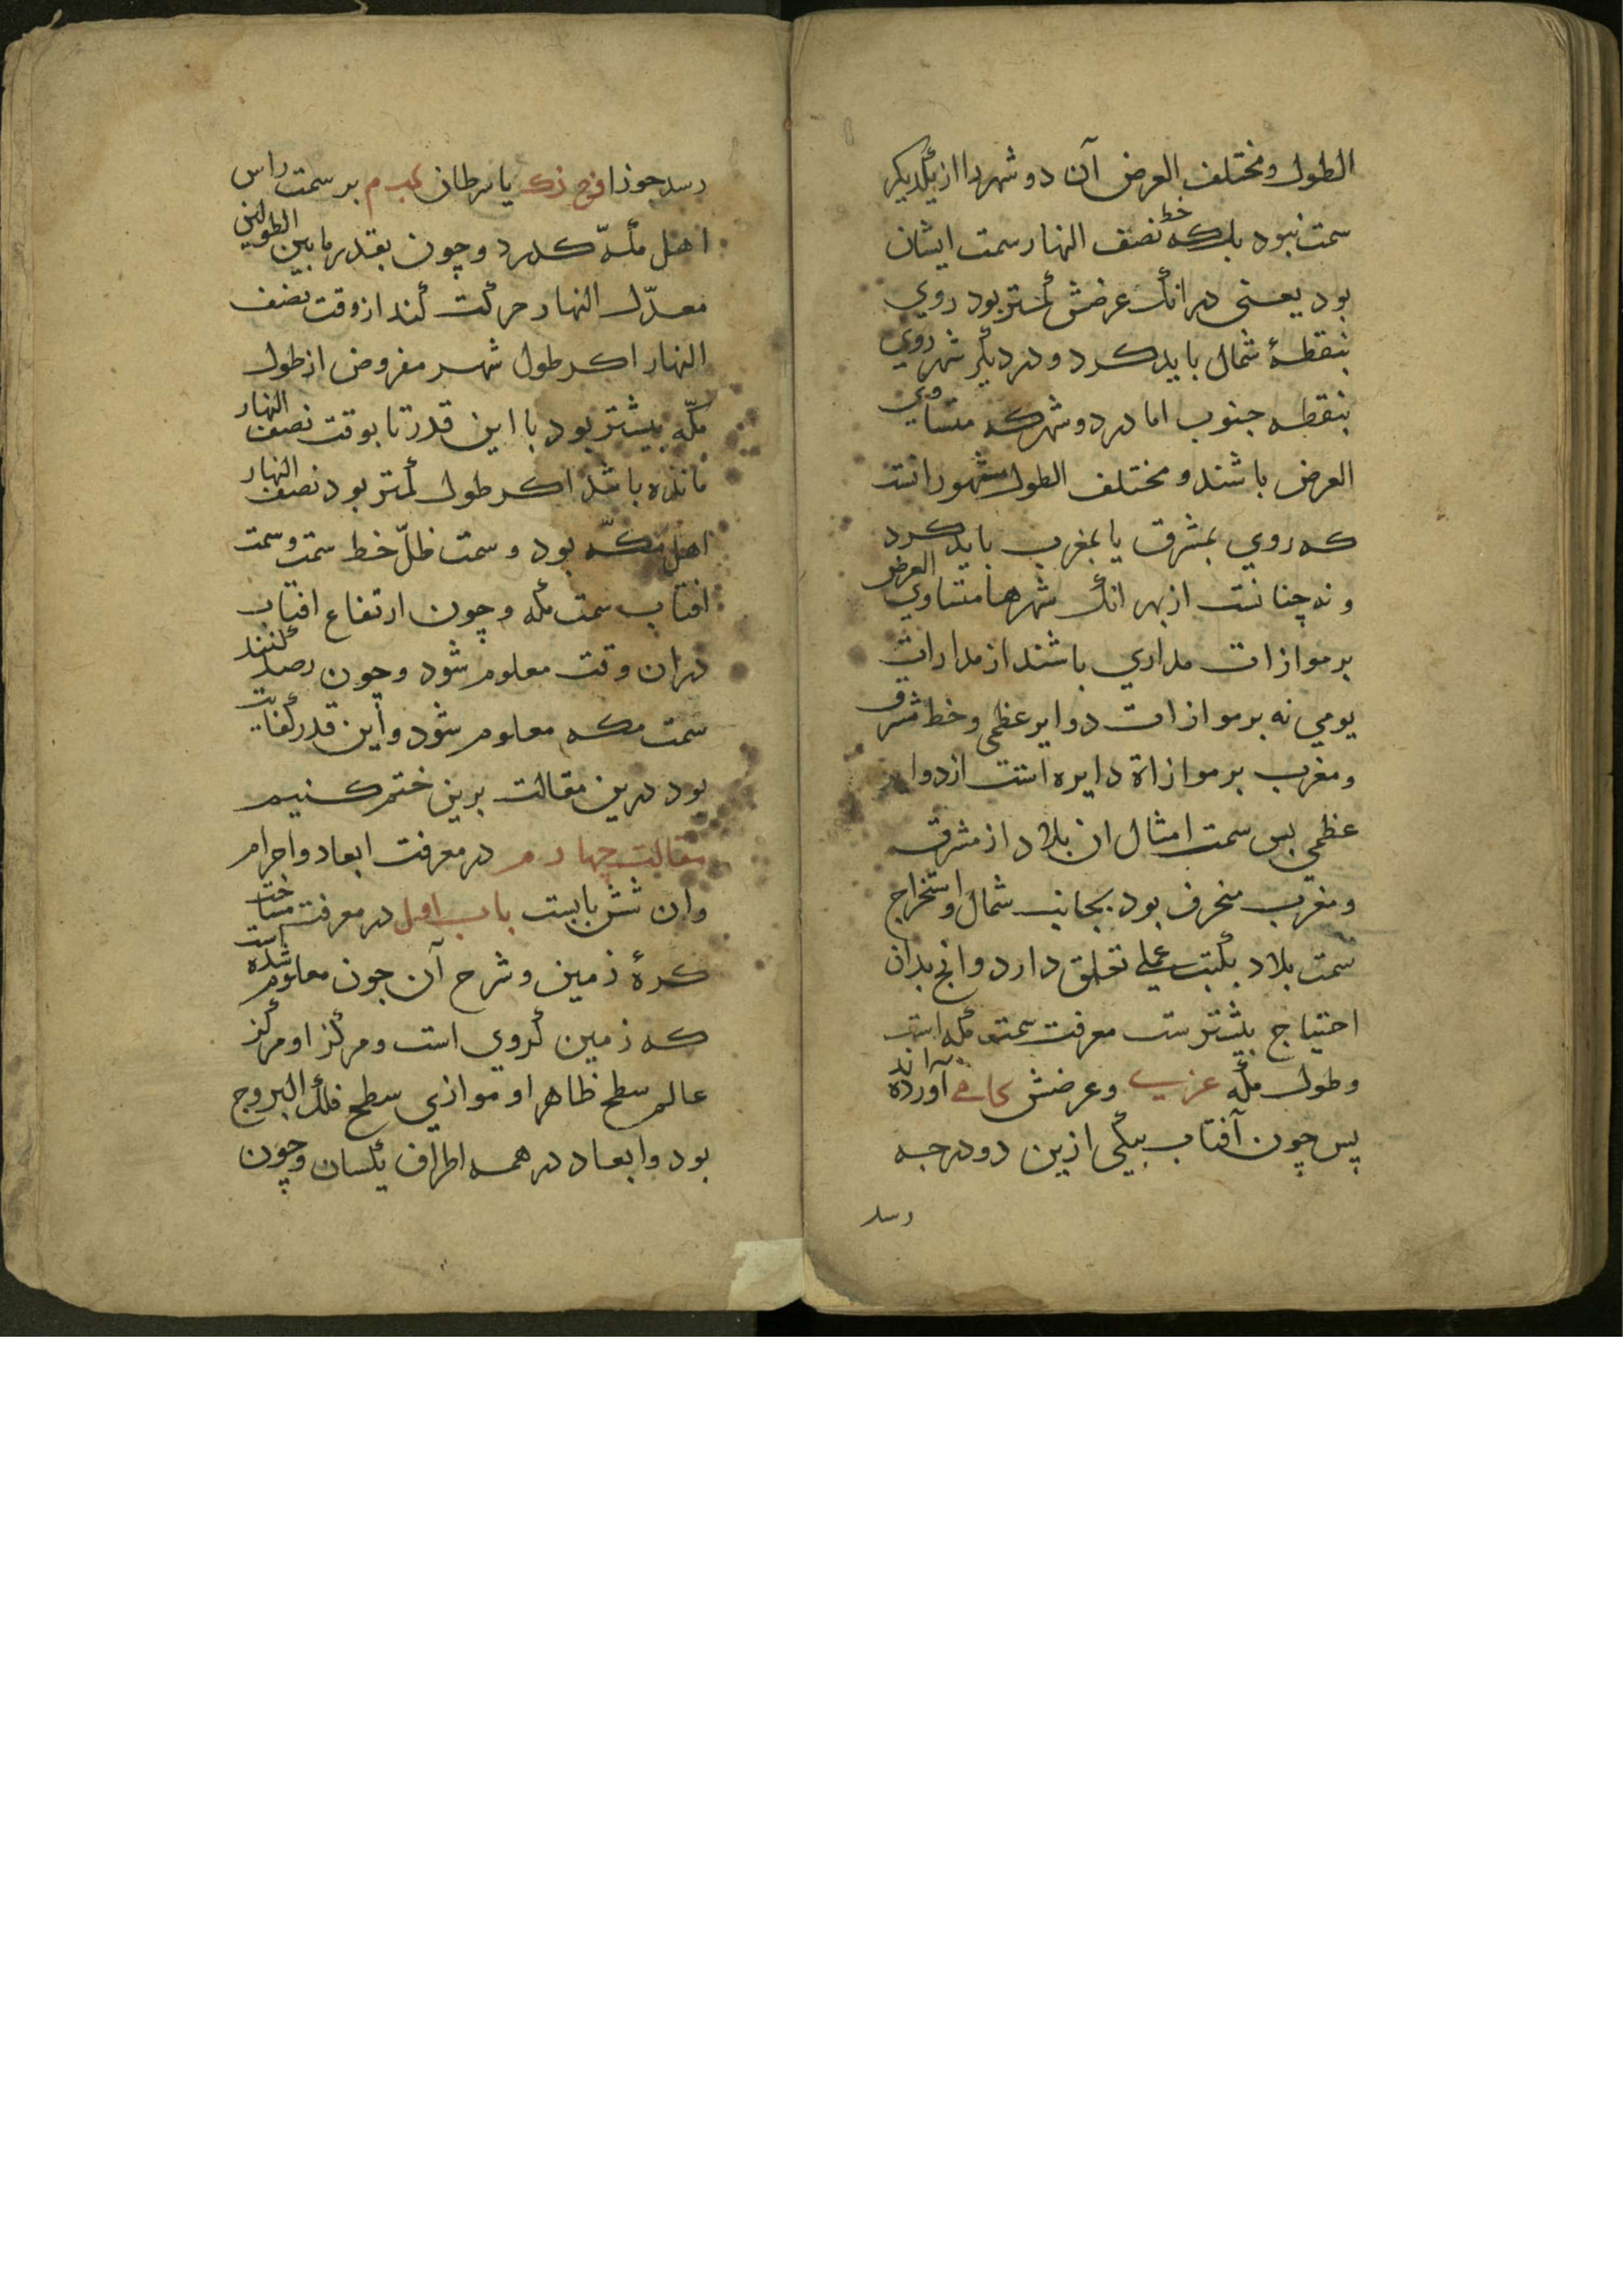 الطول ومختلف العرض آن دو شهر را از یکدیکر
سمت نبود بلکه خط نصف النهار سمت ایشان
بود یعنی در انک عرضش کمتر بود روی
بنقطهٔ شمال باید کرد و در دیکر شهر روی
بنقطه جنوب اما در دو شهر که متساوی
العرض باشند و مختلف الطول مشهور است
که روی بمشرق یا بمغرب باید کرد
و نه چنانست از بهر انک شهرها متساوی العرض
بر موازات مداری باشند از مدارات
یومی نه بر موازات دوایر عظمی و خط مشرق
و مغرب بر موازاة دایره است از دوایر
عظمی بس سمت امثال ان بلاد از مشرق
و مغرب منحرف بود بجانب شمال و استخراج
سمت بلاد بکتب عملی تعلق دارد و انج بدان
احتیاج بیشترست معرفت سمت مکه است
و طول مکه عزی وعرضش کام آورده اند
پس چون آفتاب بیکی ازین دو درجه
رسد
رسد جوزا فرح زک یا سرطان کب م بر سمت راس
اهل مکّه کذرد و چون بقدر ما بین الطولین
معدّل النهار حرکت کند از وقت نصف
النهار اکر طول شهر مفروض از طول
مکّه بیشتر بود با این قدر تا بوقت نصف النهار
مانده باشد اکر طول کمتر بود نصف النهار
اهل مکّه بود و سمت ظلّ خط سمت و سمت
افتاب سمت مکه و چون ارتفاع افتاب
دران وقت معلوم شود و چون رصد کنند
سمت مکه معلوم شود و این قدر کفایت
بود درین مقالت برین ختم کنیم
مقالت چهارم در معرفت ابعاد و اجرام
وان شش بابست باب اول در معرفت مساحت
کرهٔ زمین و شرح آن جون معلوم شده است
که زمین کروی است و مرکز او مرکز
عالم سطح ظاهر او موازی سطح فلک البروج
بود و ابعاد در همه اطراف یکسان و چون